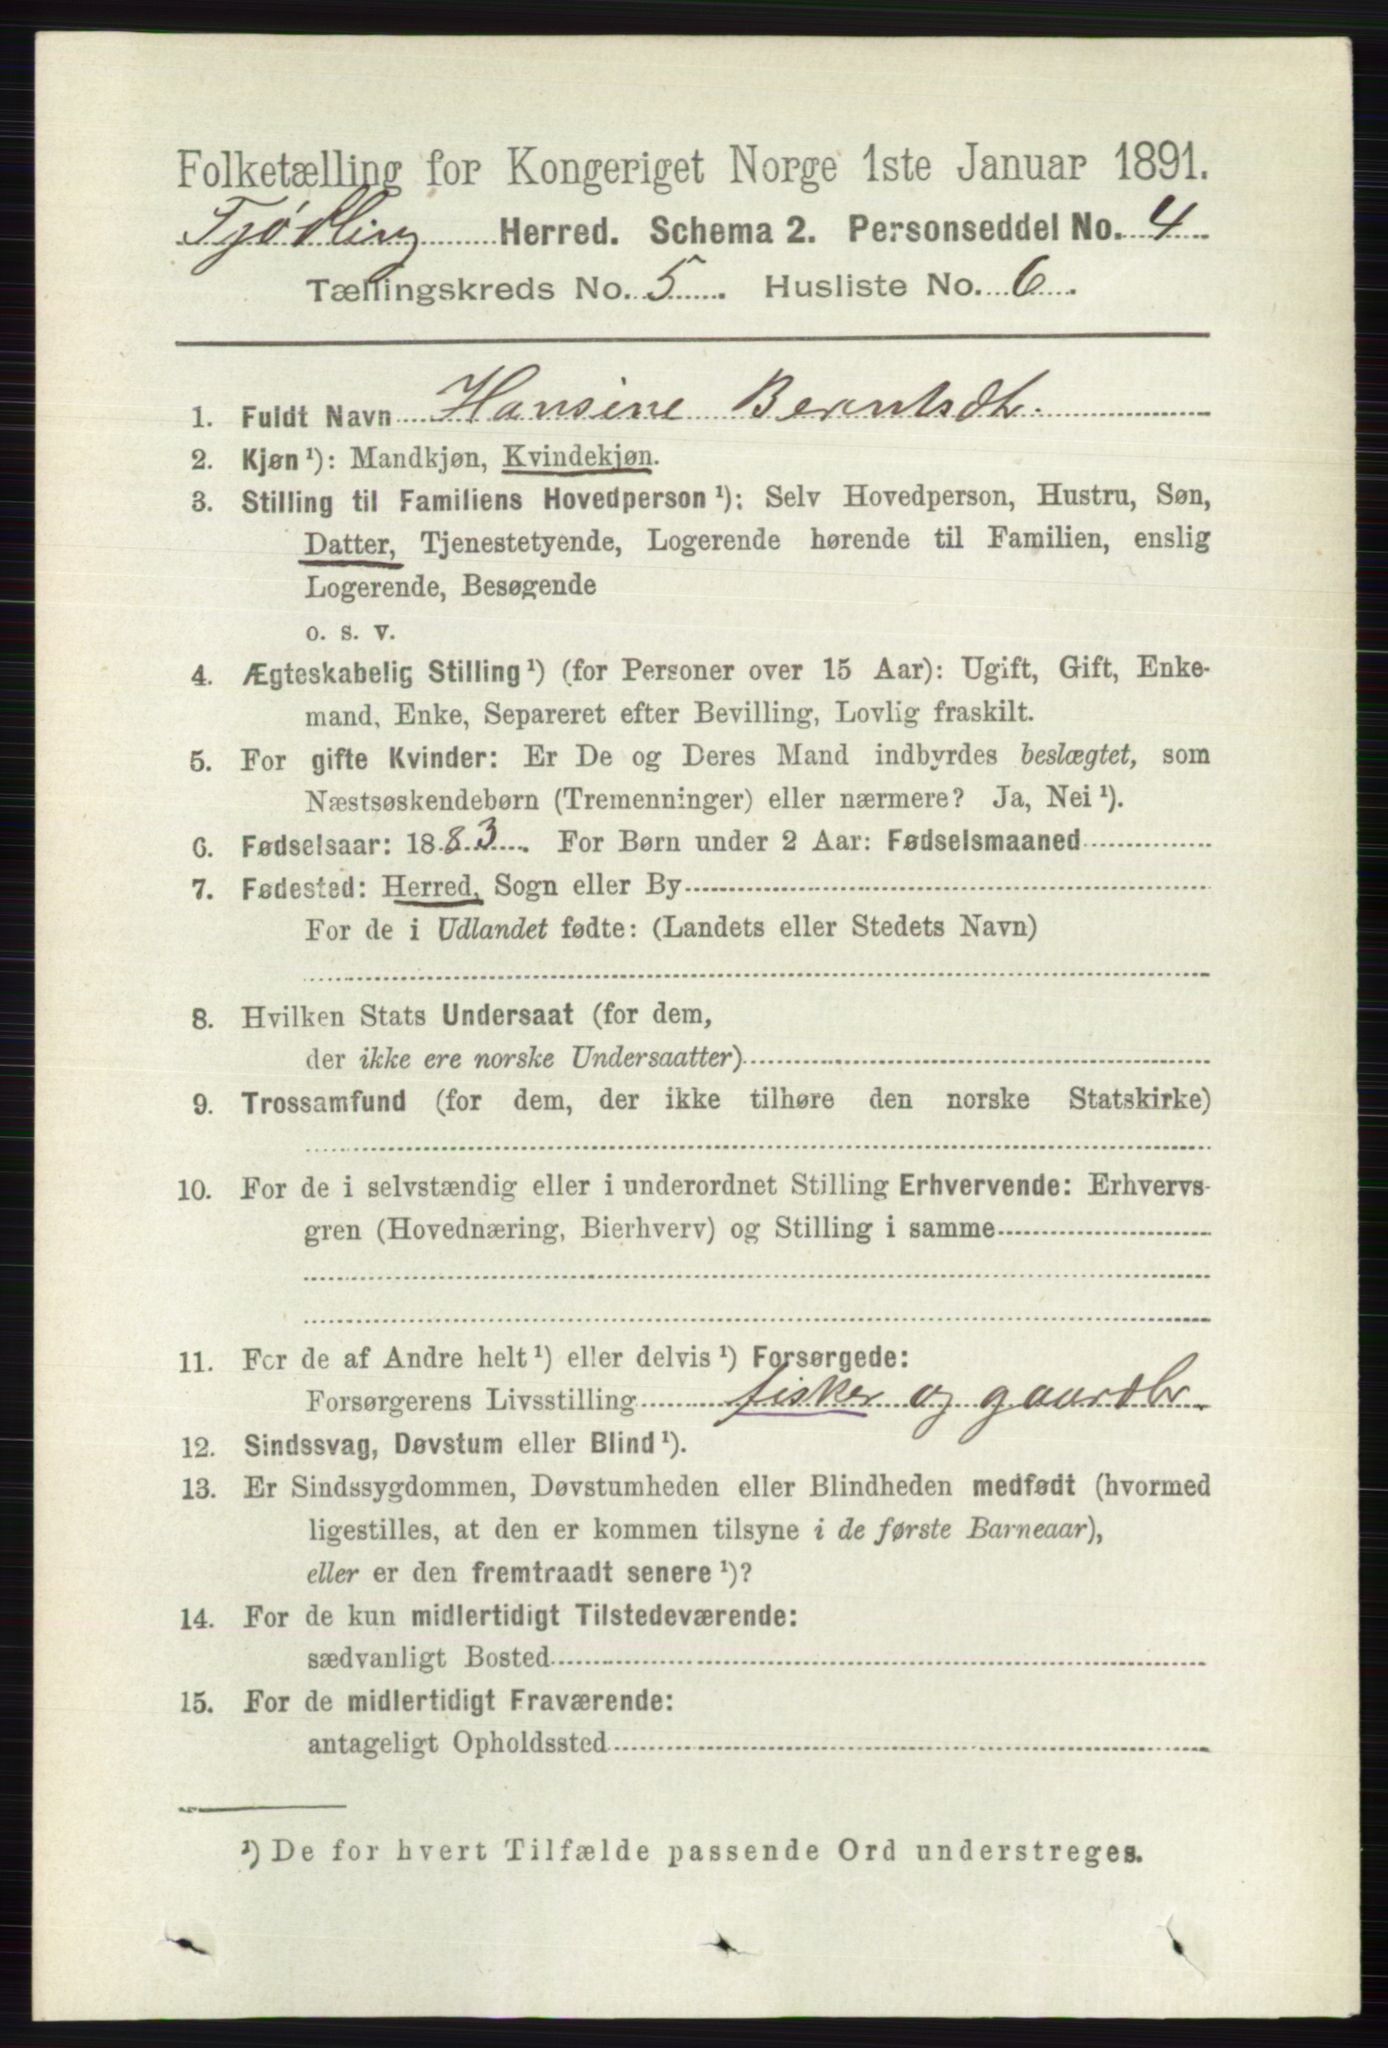 Folketælling for Kongeriget Norge 1ste Januar 1891.
Tjødling Herred. Schema 2. Personseddel No. 4
Tællingskreds No. 5. Husliste No. 6.
1. Fuldt Navn Hansine Berntsdtr.
2. Kjøn ¹): Mandkjøn, Kvindekjøn.
3. Stilling til Familiens Hovedperson ¹): Selv Hovedperson, Hustru, Søn,
Datter, Tjenestetyende, Logerende hørende til Familien, enslig
Logerende, Besøgende
o. s. v.
4. Ægteskabelig Stilling ¹) (for Personer over 15 Aar): Ugift, Gift, Enke-
mand, Enke, Separeret efter Bevilling, Lovlig fraskilt.
5. For gifte Kvinder: Er De og Deres Mand indbyrdes beslægtet, som
Næstsøskendebørn (Tremenninger) eller nærmere? Ja, Nei ¹).
6. Fødselsaar: 1883. For Børn under 2 Aar: Fødselsmaaned
7. Fødested: Herred, Sogn eller By
For de i Udlandet fødte: (Landets eller Stedets Navn)
8. Hvilken Stats Undersaat (for dem,
der ikke ere norske Undersaatter)
9. Trossamfund (for dem, der ikke tilhøre den norske Statskirke)
10. For de i selvstændig eller i underordnet Stilling Erhvervende: Erhvervs-
gren (Hovednæring, Bierhverv) og Stilling i samme
11. For de af Andre helt ¹) eller delvis ¹) Forsørgede:
Forsørgerens Livsstilling fisker og gaardbr.
12. Sindssvag, Døvstum eller Blind ¹).
13. Er Sindssygdommen, Døvstumheden eller Blindheden medfødt (hvormed
ligestilles, at den er kommen tilsyne i de første Barneaar),
eller er den fremtraadt senere ¹)?
14. For de kun midlertidigt Tilstedeværende:
sædvanligt Bosted
15. For de midlertidigt Fraværende:
antageligt Opholdssted
¹) De for hvert Tilfælde passende Ord understreges.